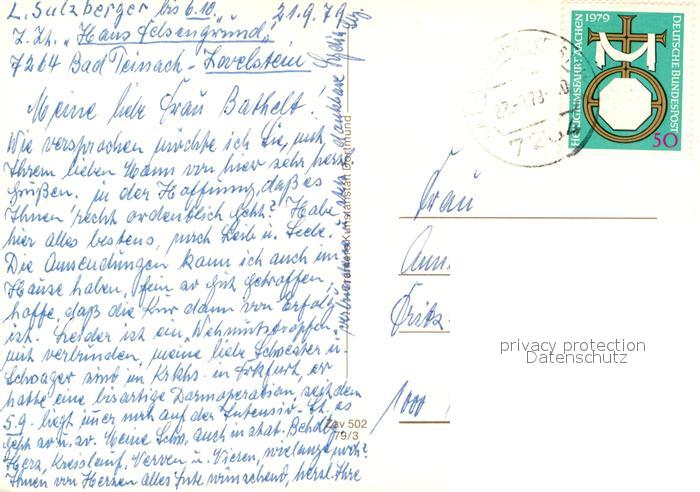 L. Sulzberger bis 6.10. 21.9.79
z. Zt. "Haus Felsengrund"
7264 Bad Teinach-Zavelstein
Meine liebe Frau Bathelt.
Wie versprochen möchte ich Sie, mit
Ihrem lieben Mann von hier sehr herzl.
grüßen. in der Hoffnung, daß es
Ihnen recht ordentlich geht? Habe
hier alles bestens, nach Leib u. Seele.
Die Anwendungen kann ich auch im
Hause haben, fein so gut getroffen,
hoffe, daß die Kur dann von Erfolg
ist. Leider ist ein "Wehmutströpfle"
mit verbunden, meine liebe Schwester u.
Schwager sind im Krkhs. in Frkfurt, er
hatte eine bösartige Darmoperation, seit dem
5.9. liegt immer noch auf der Intensiv-St. es
geht so n. so. Meine Schw. auch in stat. Behdlg.
Herz, Kreislauf, Nerven u. Nieren, wielange noch?
Ihnen von Herzen alles Gute wünschend, herzl. Ihre
dankbare Lydia Szg.
Kunstanstalt Dortmund
Zav 502
79/3
7264
HEILIGTUMSFAHRT AACHEN
1979
DEUTSCHE BUNDESPOST
50
Frau
Ann
Fritz
1000
privacy protection
Datenschutz